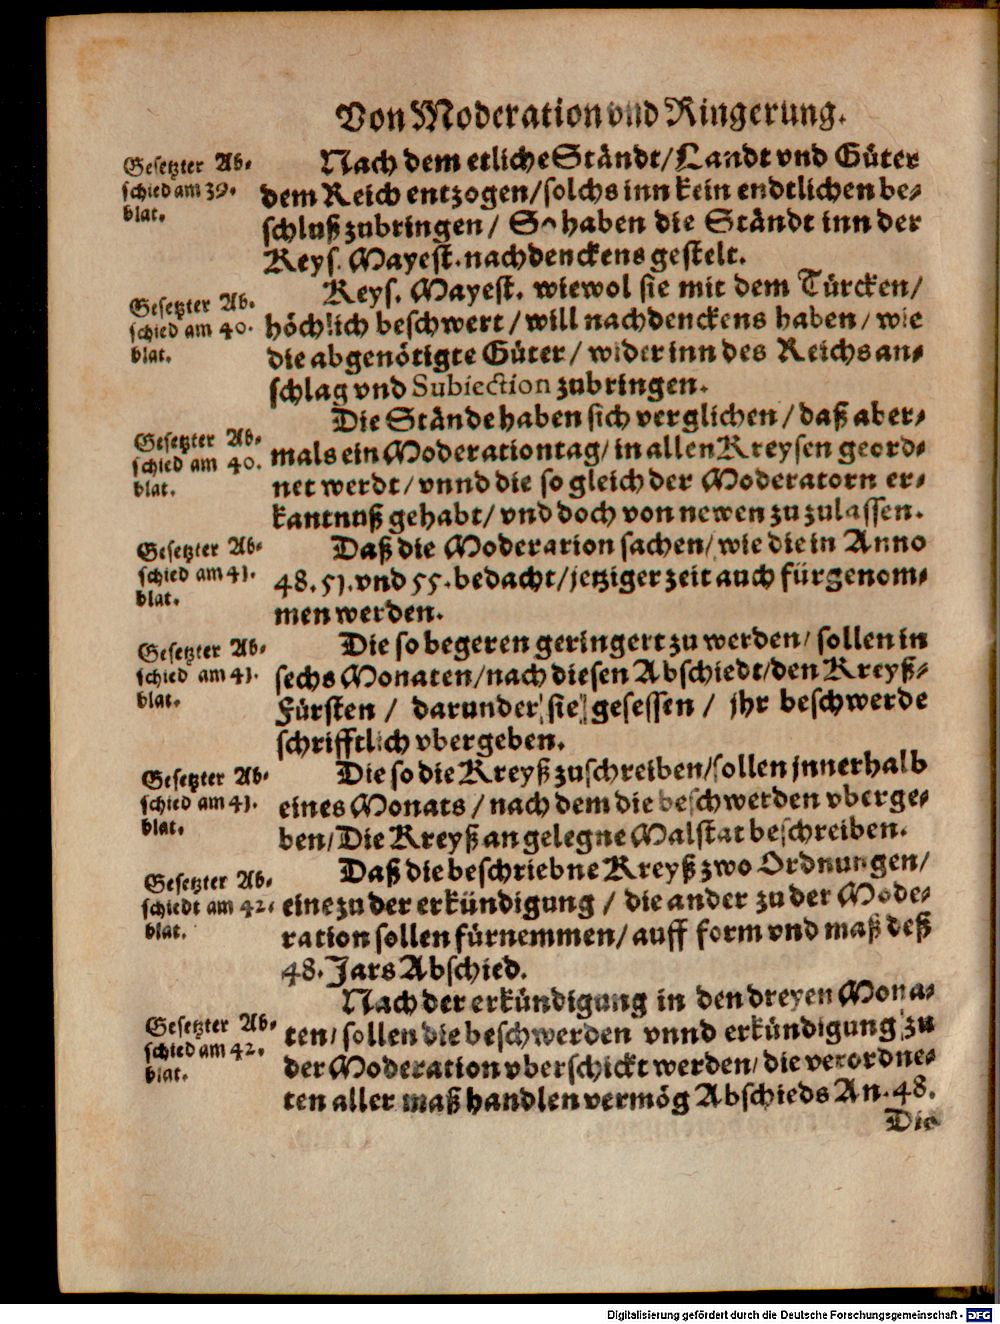 Von Moderation vnd Ringerung.
Gesetzter Ab-
schied am 39.
blat.
Nach dem etliche Ständt/Landt vnd Güter
dem Reich entzogen/solchs inn kein endtlichen be-
schluß zubringen/ So haben die Ständt inn der
Keys. Mayest. nachdenckens gestelt.
Gesetzter Ab-
schied am 40.
blat.
Keys. Mayest. wiewol sie mit dem Türcken/
höchlich beschwert/will nachdenckens haben/wie
die abgenötigte Güter/wider inn des Reichs an-
schlag vnd Subiection zubringen.
Gesetzter Ab-
schied am 40.
blat.
Die Stände haben sich verglichen/daß aber-
mals ein Moderationtag/in allen Kreysen geord-
net werdt/vnnd die so gleich der Moderatorn er-
kantnuß gehabt/vnd doch von newen zu zulassen.
Gesetzter Ab-
schied am 41.
blat.
Daß die Moderarion sachen/wie die in Anno
48. 51. vnd 55. bedacht/jetziger zeit auch fürgenom-
men werden.
Gesetzter Ab-
schied am 41.
blat.
Die so begeren geringert zu werden/sollen in
sechs Monaten/nach diesen Abschiedt/den Kreyß-
Fürsten / darunder sie gesessen / jhr beschwerde
schrifftlich vbergeben.
Gesetzter Ab-
schied am 41.
blat.
Die so die Kreyß zuschreiben/sollen jnnerhalb
eines Monats/nach dem die beschwerden vberge-
ben/Die Kreyß an gelegne Malstat beschreiben.
Gesetzter Ab-
schiedt am 42.
blat.
Daß die beschriebne Kreyß zwo Ordnungen/
eine zu der erkündigung / die ander zu der Mode-
ration sollen fürnemmen/auff form vnd maß deß
48. Jars Abschied.
Gesetzter Ab-
schied am 42.
blat.
Nach der erkündigung in den dreyen Mona-
ten/sollen die beschwerden vnnd erkündigung zu
der Moderation vberschickt werden/die verordne-
ten aller maß handlen vermög Abschieds An. 48.
Die
Digitalisierung gefördert durch die Deutsche Forschungsgemeinschaft - DFG